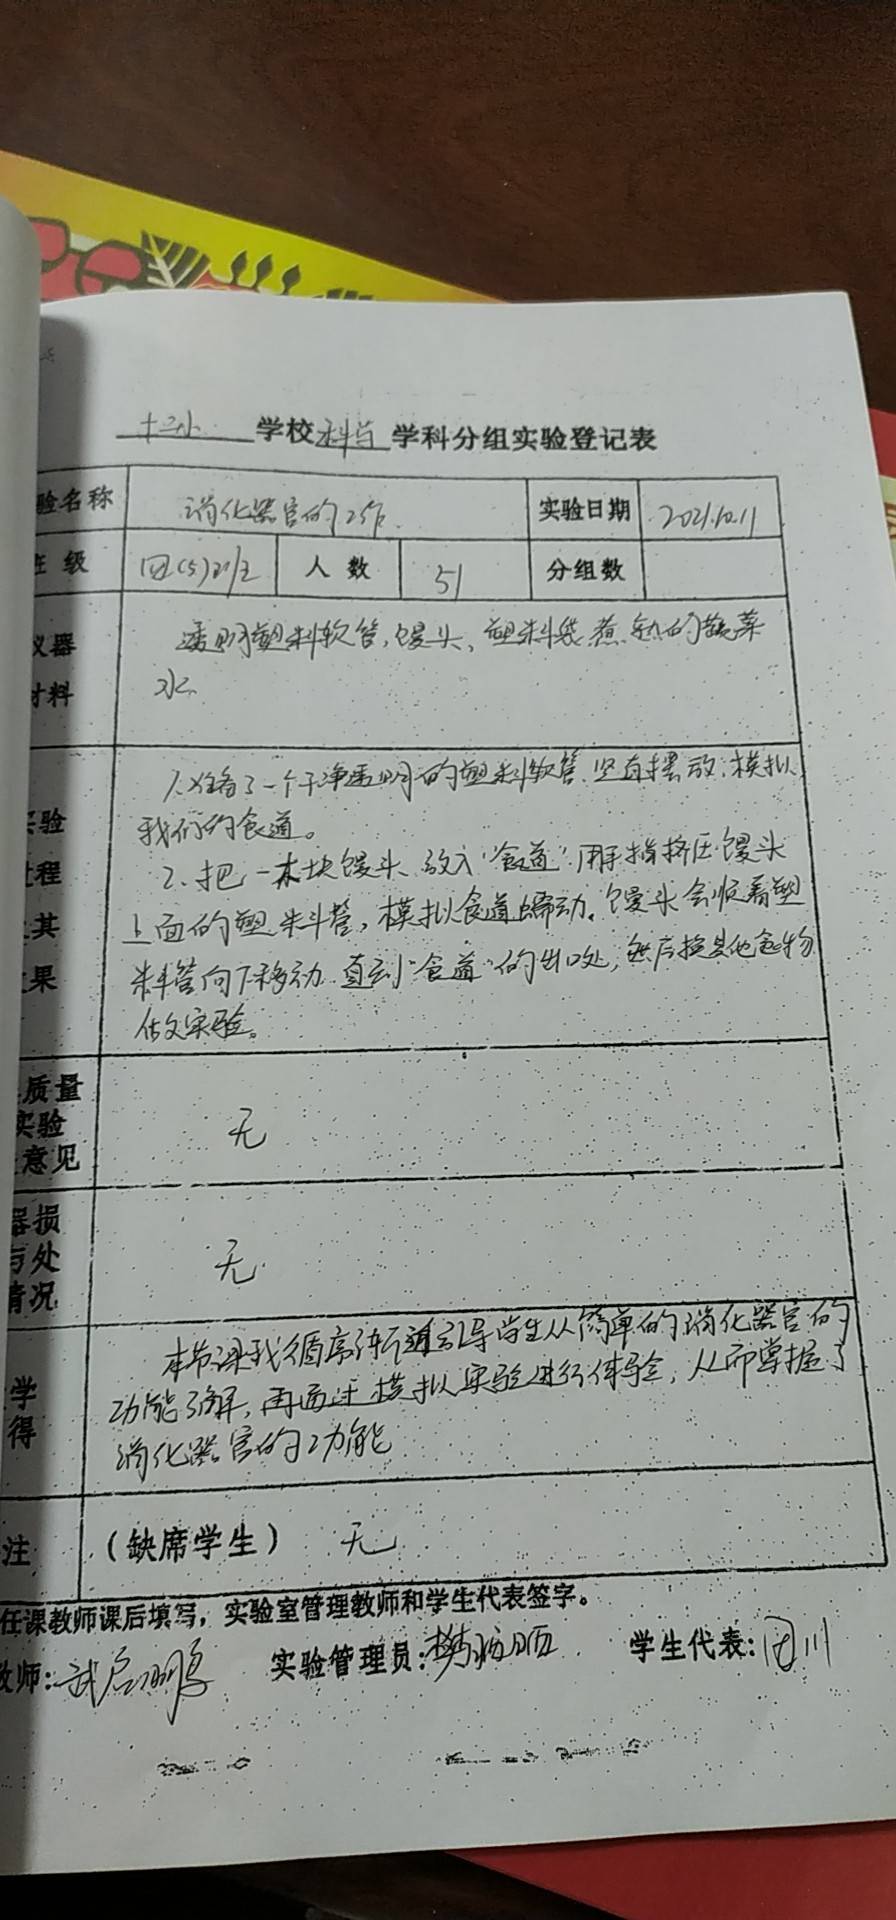 十三小 学校 科学 学科分组实验登记表
验名称 消化器官的工作 实验日期 2021.10.11
班级 四(5) 人数 51 分组数
仪器
材料
透明塑料软管,馒头、塑料袋煮熟的蔬菜
水
实验
过程
其
果
1.准备了一个干净透明的塑料软管.竖直摆放,模拟
我们的食道。
2、把一小块馒头放入“食道”用手指挤压馒头
上面的塑料管,模拟食道蠕动。馒头会顺着塑
料管向下移动.直到“食道”的出口处,然后换其他食物
做实验。
质量
实验
意见
无
器损
与处
情况
无
本节课我循序渐进引导学生从简单的消化器官的
功能了解,再通过模拟实验进行体验,从而掌握了
消化器官的功能
学
得
注 (缺席学生) 无
任课教师课后填写,实验室管理教师和学生代表签字。
教师: 实验管理员: 学生代表: